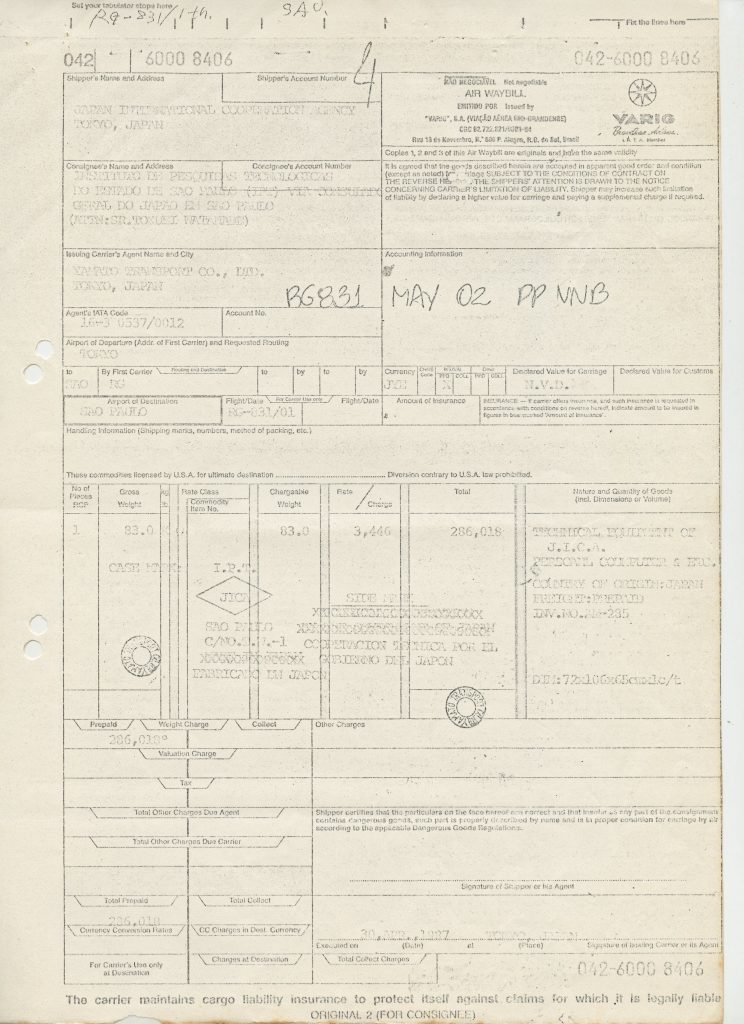 Set your tabulator stops here
RG-831/1th.
SAO.
Fix the lines here
042 6000 8406
042-6000 8406
4
Shipper's Name and Address
Shipper's Account Number
JAPAN INTERNATIONAL COOPERATION AGENCY
TOKYO, JAPAN
NÃO NEGOCIÁVEL Not negotiable
AIR WAYBILL
EMITIDO POR Issued by
"VARIG", S.A. (VIAÇÃO AÉREA RIO-GRANDENSE)
Rua 18 de Novembro, N.º 800 P. Alegre, R.G. do Sul, Brasil
VARIG
Brazilian Airlines
Copies 1, 2 and 3 of this Air Waybill are originals and have the same validity
Consignee's Name and Address
Consignee's Account Number
INSTITUTO DE PESQUISAS TECNOLOGICAS
DO ESTADO DE SAO PAULO (IPT) VIA CONSULADO
GERAL DO JAPAO EM SAO PAULO
(ATTN:SR.TOKUEI WATANABE)
It is agreed that the goods described herein are accepted in apparent good order and condition
(except as noted) for carriage SUBJECT TO THE CONDITIONS OF CONTRACT ON
THE REVERSE HEREOF. THE SHIPPERS' ATTENTION IS DRAWN TO THE NOTICE
CONCERNING CARRIER'S LIMITATION OF LIABILITY. Shipper may increase such limitation
of liability by declaring a higher value for carriage and paying a supplemental charge if required.
Issuing Carrier's Agent Name and City
YAMATO TRANSPORT CO., LTD.
TOKYO, JAPAN
Accounting Information
RG831 MAY 02 PP NNB
Agent's IATA Code
Account No.
16-3 0537/0012
Airport of Departure (Addr. of First Carrier) and Requested Routing
TOKYO
to
By First Carrier
Routing and Destination
to
by
to
by
Currency
Declared Value for Carriage
Declared Value for Customs
SAO
RG
X
N.V.D.
Airport of Destination
Flight/Date
For Carrier Use only
Flight/Date
Amount of Insurance
INSURANCE — If carrier offers insurance, and such insurance is requested in
accordance with conditions on reverse hereof, indicate amount to be insured in
figures in box marked 'Amount of insurance'.
SAO PAULO
RG-831/01
Handling Information (Shipping marks, numbers, method of packing, etc.)
These commodities licensed by U.S.A. for ultimate destination
Diversion contrary to U.S.A. law prohibited.
No of Pieces RCP
Gross Weight
kg lb
Rate Class
Commodity Item No.
Chargeable Weight
Rate / Charge
Total
Nature and Quantity of Goods
(Incl. Dimensions or Volume)
1
83.0
83.0
3,446
286,018
TECHNICAL EQUIPMENT OF
J.I.C.A.
PERSONAL COMPUTER & ETC.
COUNTRY OF ORIGIN:JAPAN
FREIGHT:PREPAID
CASE MARK:
I.P.T.
JICA
SIDE MARK
SAO PAULO
COOPERACION TECNICA POR EL
GOBIERNO DEL JAPON
FABRICADO EN JAPON
Prepaid
Weight Charge
Collect
Other Charges
286,018
Valuation Charge
Tax
Total Other Charges Due Agent
Shipper certifies that the particulars on the face hereof are correct and that insofar as any part of the consignment
contains dangerous goods, such part is properly described by name and is in proper condition for carriage by air
according to the applicable Dangerous Goods Regulations.
Total Other Charges Due Carrier
Signature of Shipper or his Agent
Total Prepaid
Total Collect
286,018
Currency Conversion Rates
CC Charges in Dest. Currency
30,APR.,1987
TOKYO, JAPAN
Executed on
(Date)
at
(Place)
Signature of Issuing Carrier or its Agent
For Carrier's Use only
at Destination
Charges at Destination
Total Collect Charges
042-6000 8406
The carrier maintains cargo liability insurance to protect itself against claims for which it is legally liable
ORIGINAL 2 (FOR CONSIGNEE)